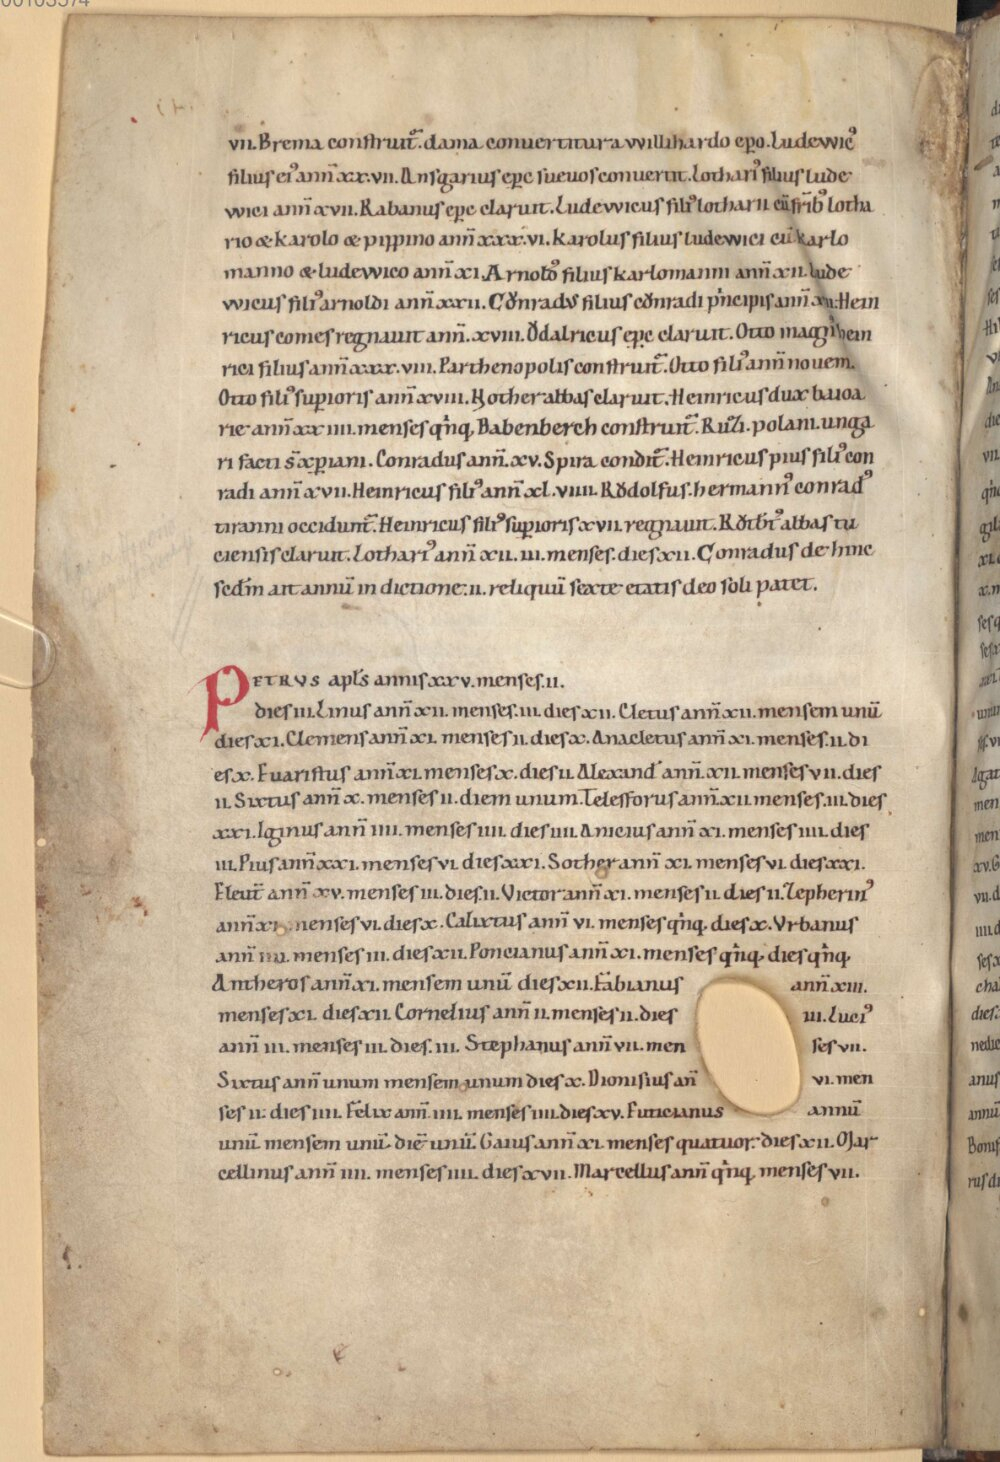 00103574
vii. Brema construit᷑. dama conuertitur a vvillihardo ep̅o. Ludevvicꝰ
filius eiꝰ ann̅ xx.vii. Ansgarius ep̅c sueuos conuertit. Lothariꝰ filius lude
vvici ann̅ xvii. Rabanus ep̅c claruit. Ludevvicus filiꝰ lotharii cū fr̅ibꝰ lotha
rio & karolo & pippino ann̅ xxx.vi. karolus filius ludevvici cū karlo
manno & ludevvico ann̅ xi. Arnolꝰ filius karlomanni ann̅ xii. lude
vvicus filiꝰ arnoldi ann̅ xxii. Cǒnradꝰ filius cǒnradi pͥncipis ann̅ Hein
ricus comes regnauit ann̅. xviii. Ǒdalricus ep̅c claruit. Otto magnꝰ hein
rici filius ann̅ xxx.viii. Parthenopolis construit᷑. Otto filiꝰ ann̅ nouem.
Otto filiꝰ superioris ann̅ xviii. Nother abbas claruit. Heinricus dux baioa
rie ann̅ xx iiii. menses qͥnq. Babenberch construit᷑. polani. unga
ri facti st̅ xp̅iani. Conradus ann̅. xv. Spira condit᷑. Heinricus pius filiꝰ con
radi ann̅ xvii. Heinricus filiꝰ ann̅ xl.viiii. Rǒdolfus. hermannꝰ conradꝰ
tiranni occidunt᷑. Heinricus filiꝰ superioris xvii. regnauit. Rǒtbt̅ abbas tu
ciensis claruit. Lothariꝰ ann̅ xii. iii. menses. dies xii. Conradus de hinc
sed̅m ait annū in dictione. ii. reliquū sexte etatis deo soli patet.
PETRVS apl̅s annis xx v. menses. ii.
dies iii. Linus ann̅ xii. menses. iii. dies xii. Cletus ann̅ xii. mensem unū
dies xi. Clemens ann̅ xi. menses ii. dies x. Anacletus ann̅ xi. menses. ii. di
es x. Euaristus ann̅ xi menses x. dies ii. Alexand᷑ ann̅. xii. menses vii. dies
ii. Sixtus ann̅ x. menses ii. diem unum. Telesforus ann̅ xii menses. iii. dies
xxi. Iginus ann̅ iiii. menses iiii. dies iiii. Anicius ann̅ xi. menses iiii. dies
iii. Pius ann̅ xxi. menses vi. dies xxi. Sother ann̅ xi. menses vi. dies xxi.
Eleut̅ ann̅ xv. menses iii. dies. ii. Victor ann̅ xi. menses ii. dies ii. Zepherinꝰ
ann̅ menses vi. dies x. Calixtus ann̅ vi. menses qͥnq. dies x. Vrbanus
ann̅ iiii. menses iii. dies xii. Poncianus ann̅ xi. menses qͥnq. dies qͥnq.
Antheros ann̅ xi. mensem unū dies xii. Fabianus ann̅ xiii.
menses xi. dies xii. Cornelius ann̅ ii. menses ii. dies iii. Luciꝰ
ann̅ iii. menses iii. dies. iii. Stephanus ann̅ vii. men ses vii.
Sixtus ann̅ unum mensem unum dies x. Dionisius an̅ vi. men
ses ii. dies iiii. Felix ann̅. iiii. menses iiii. dies xv. Euticianus annū
unū mensem unū. diē unū. Gaius ann̅ xi. menses quatuor. dies xii. Mar
cellinus ann̅ iiii. menses iiii. dies xvii. Marcellus ann̅ qͥnq. menses vii.